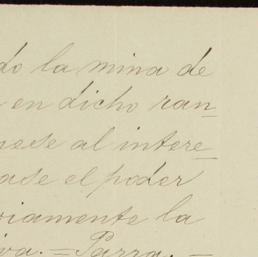 do la mina de
en dicho ran_
nese al intere_
ase el poder
viamente la
iva. = Parra. _